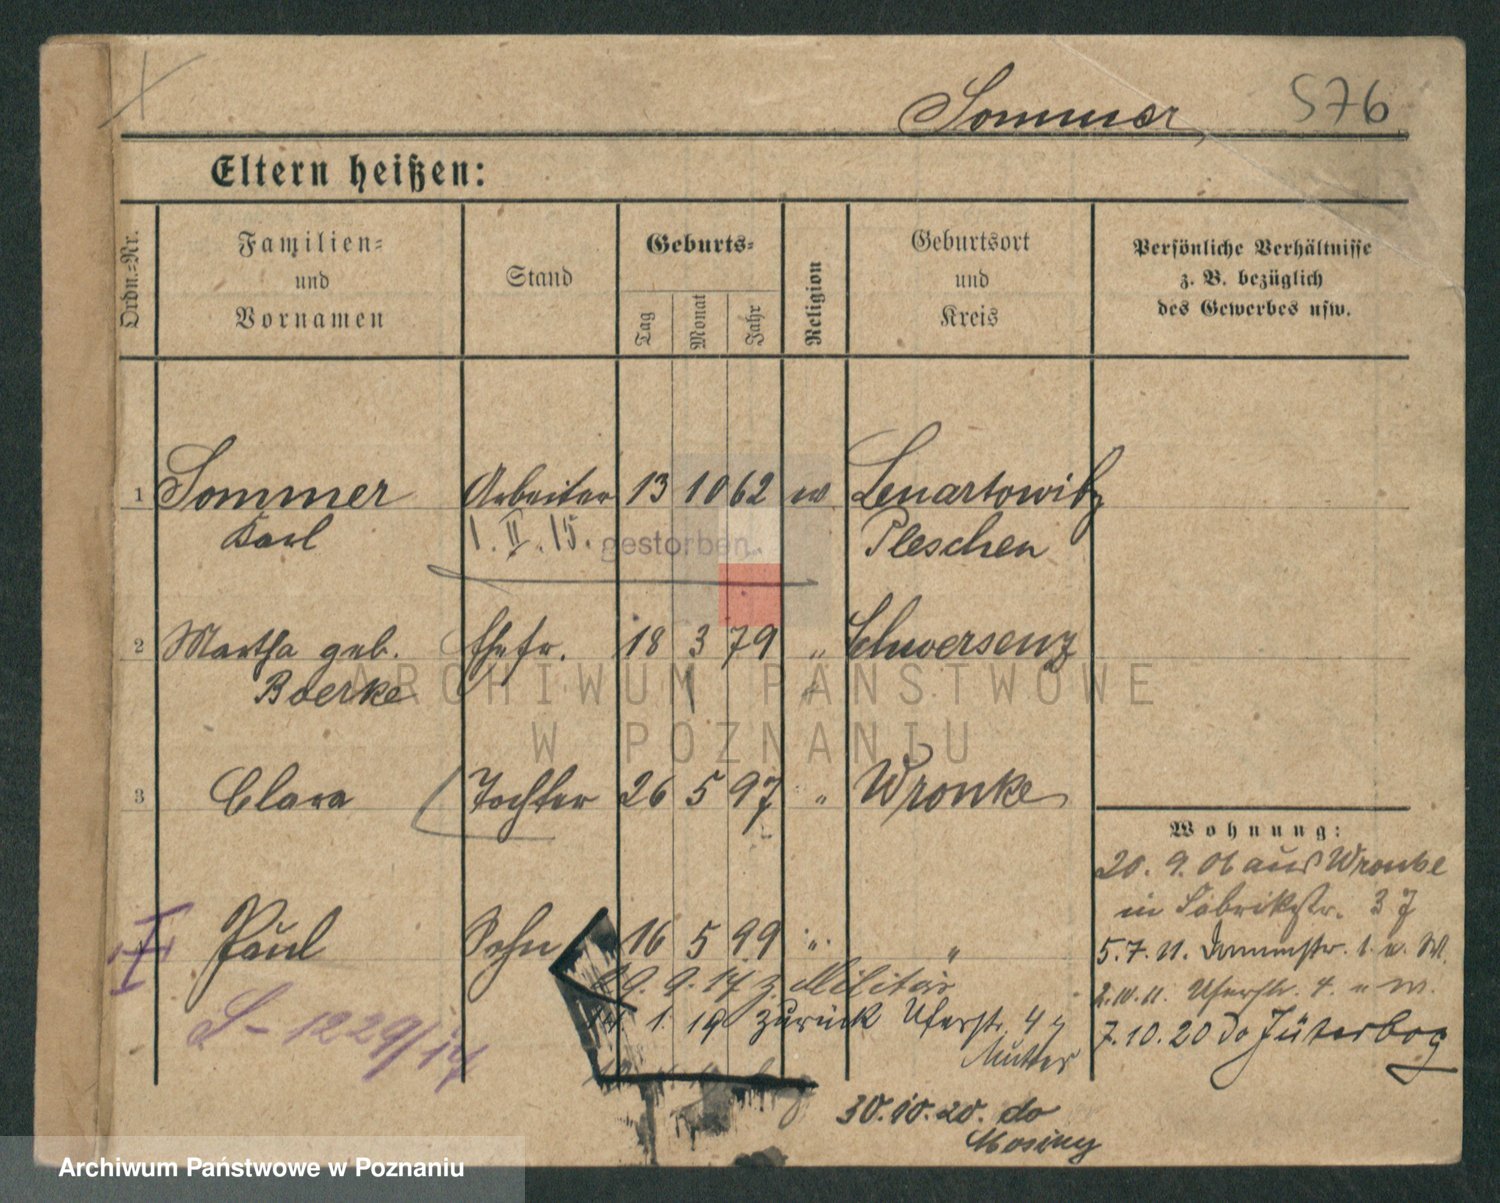 Sommer 576
Eltern heißen:
Ordn.-Nr.
Familien-
und
Vornamen
Stand
Geburts-
Tag
Monat
Jahr
Religion
Geburtsort
und
Kreis
Persönliche Verhältnisse
z. B. bezüglich
des Gewerbes usw.
1 Sommer Arbeiter 13 10 62 Lenartowitz
Karl 1. II. 15. gestorben. Pleschen
2 Martha geb. Ehefr. 18 3 79 " Schwersenz
Boerke
3 Clara Tochter 26 5 97 " Wronke
Paul Sohn 16 5 99 " "
9. 17 z. Militär
1. 19 zurück Uferstr. 4
Mutter
S-1229/17
Wohnung:
20. 9. 06 aus Wronke
in Fabrikstr. 37
5. 7. 11.
Uferstr. 4.
7. 10. 20 do Jüterbog
30. 10. 20. do
Mosiny
ARCHIWUM PAŃSTWOWE
W POZNANIU
Archiwum Państwowe w Poznaniu